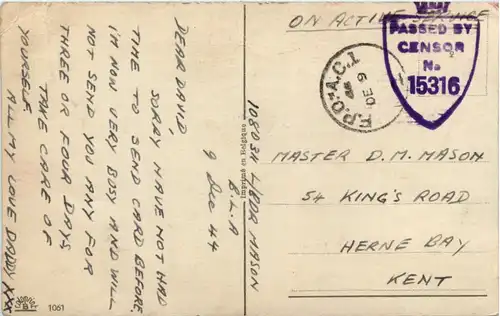 1080311 L/BDR MASON
B.L.A
9 Dec 44
DEAR DAVID,
SORRY HAVE NOT HAD
TIME TO SEND CARD BEFORE.
I'M NOW VERY BUSY AND WILL
NOT SEND YOU ANY FOR
THREE OR FOUR DAYS
TAKE CARE OF
YOURSELF
ALL MY LOVE DADDY XXX
1061
Imprimé en Belgique
ON ACTIVE SERVICE
F.P.O. A.C.1
DE 9
PASSED BY
CENSOR
No
15316
MASTER D. M. MASON
54 KING'S ROAD
HERNE BAY
KENT